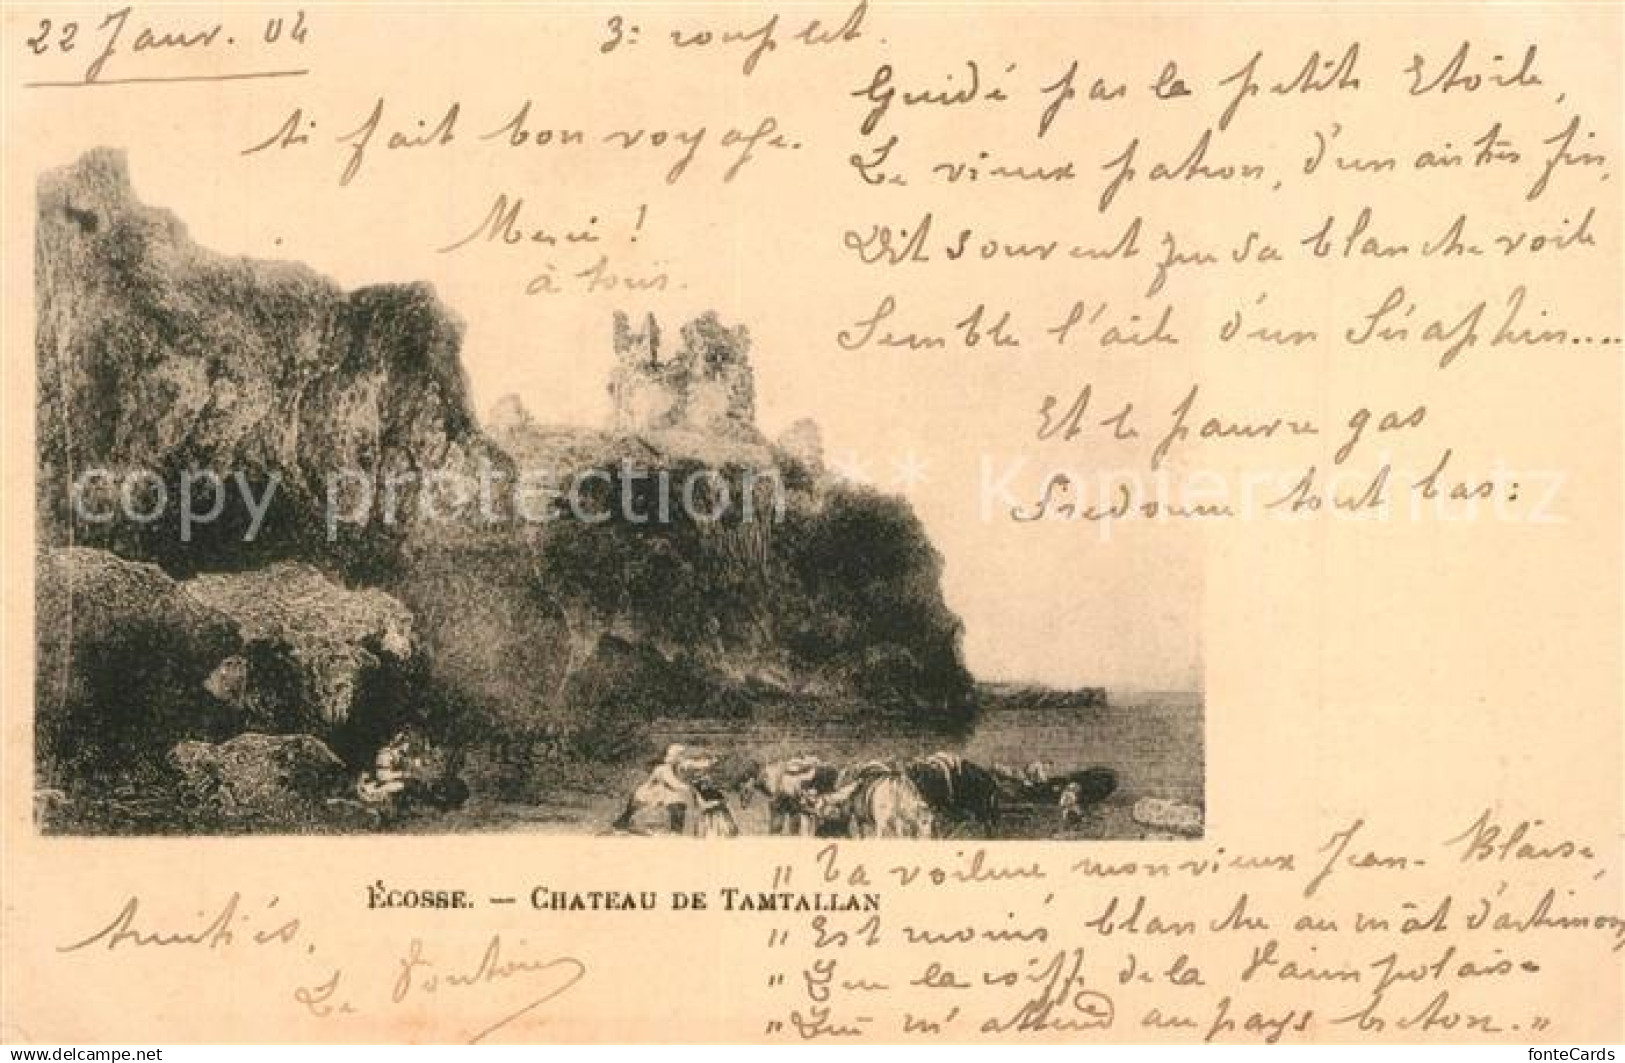 22 Janv. 04
3e couplet.
ai fait bon voyage.
Merci !
à tous.
Guidé par la petite Etoile,
Le vieux patron, d'un air très fin,
Dit souvent que sa blanche voile
Semble l'aile d'un Séraphin....
Et le pauvre gas
Fredonne tout bas :
copy protection ** Kopierschutz
ÉCOSSE. — CHATEAU DE TAMTALLAN
Amitiés.
Le
" Ta voilure mon vieux Jean-Blaise,
" Est moins blanche au mât d'artimon,
" Que la coiffe de la Paimpolaise
" Qui m'attend au pays breton. "
www.delcampe.net
fonteCards